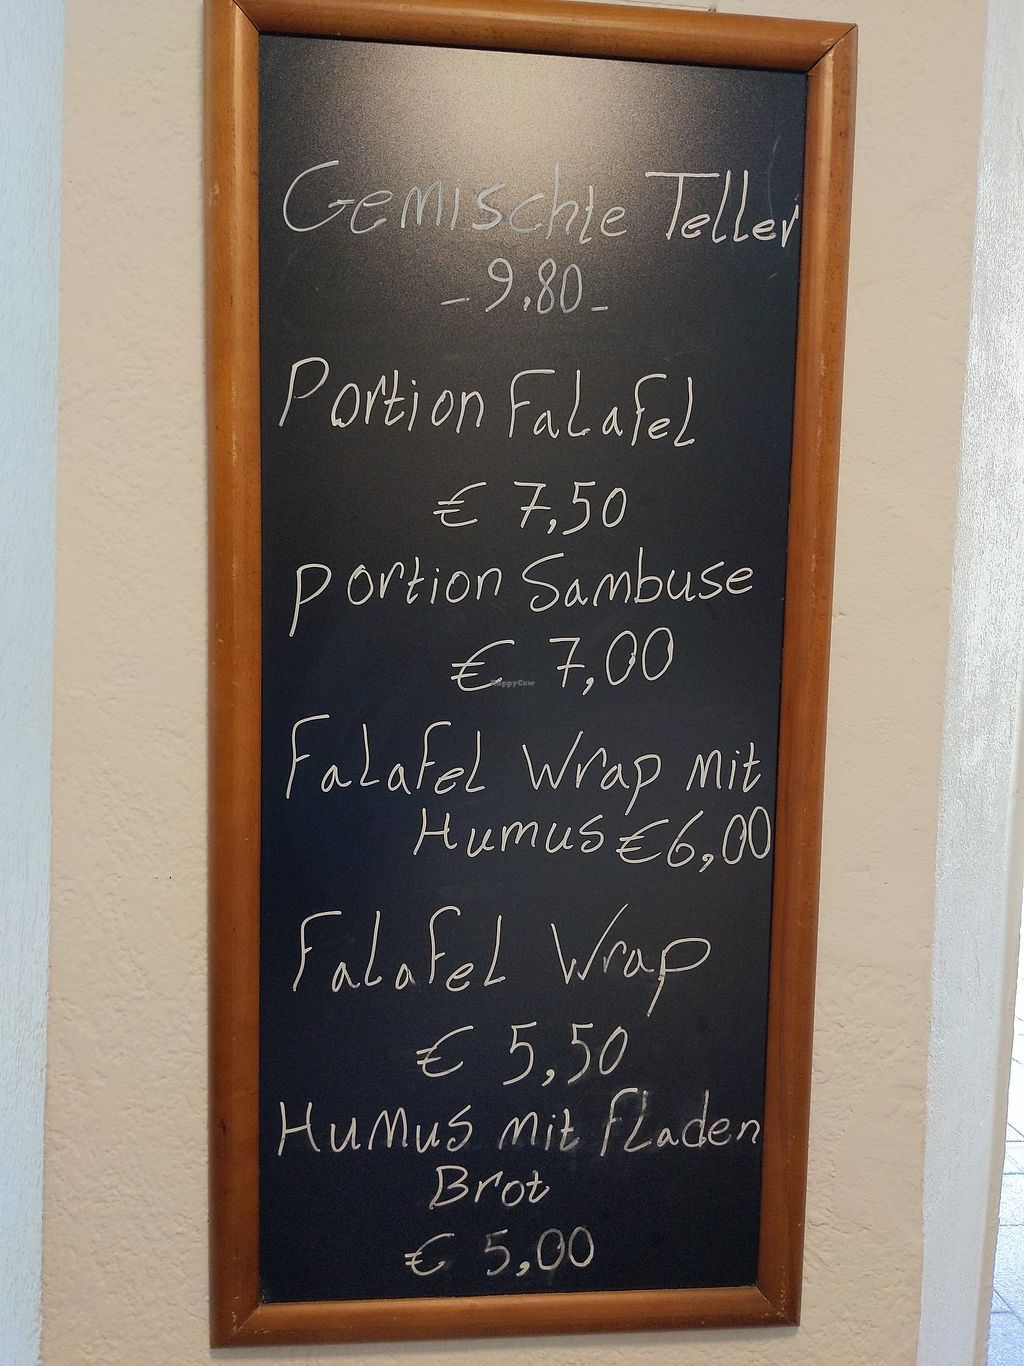 Gemischte Teller
- 9,80 -
Portion Falafel
€ 7,50
portion Sambuse
€ 7,00
HappyCow
Falafel Wrap mit
Humus €6,00
Falafel Wrap
€ 5,50
Humus mit fladen
Brot
€ 5,00